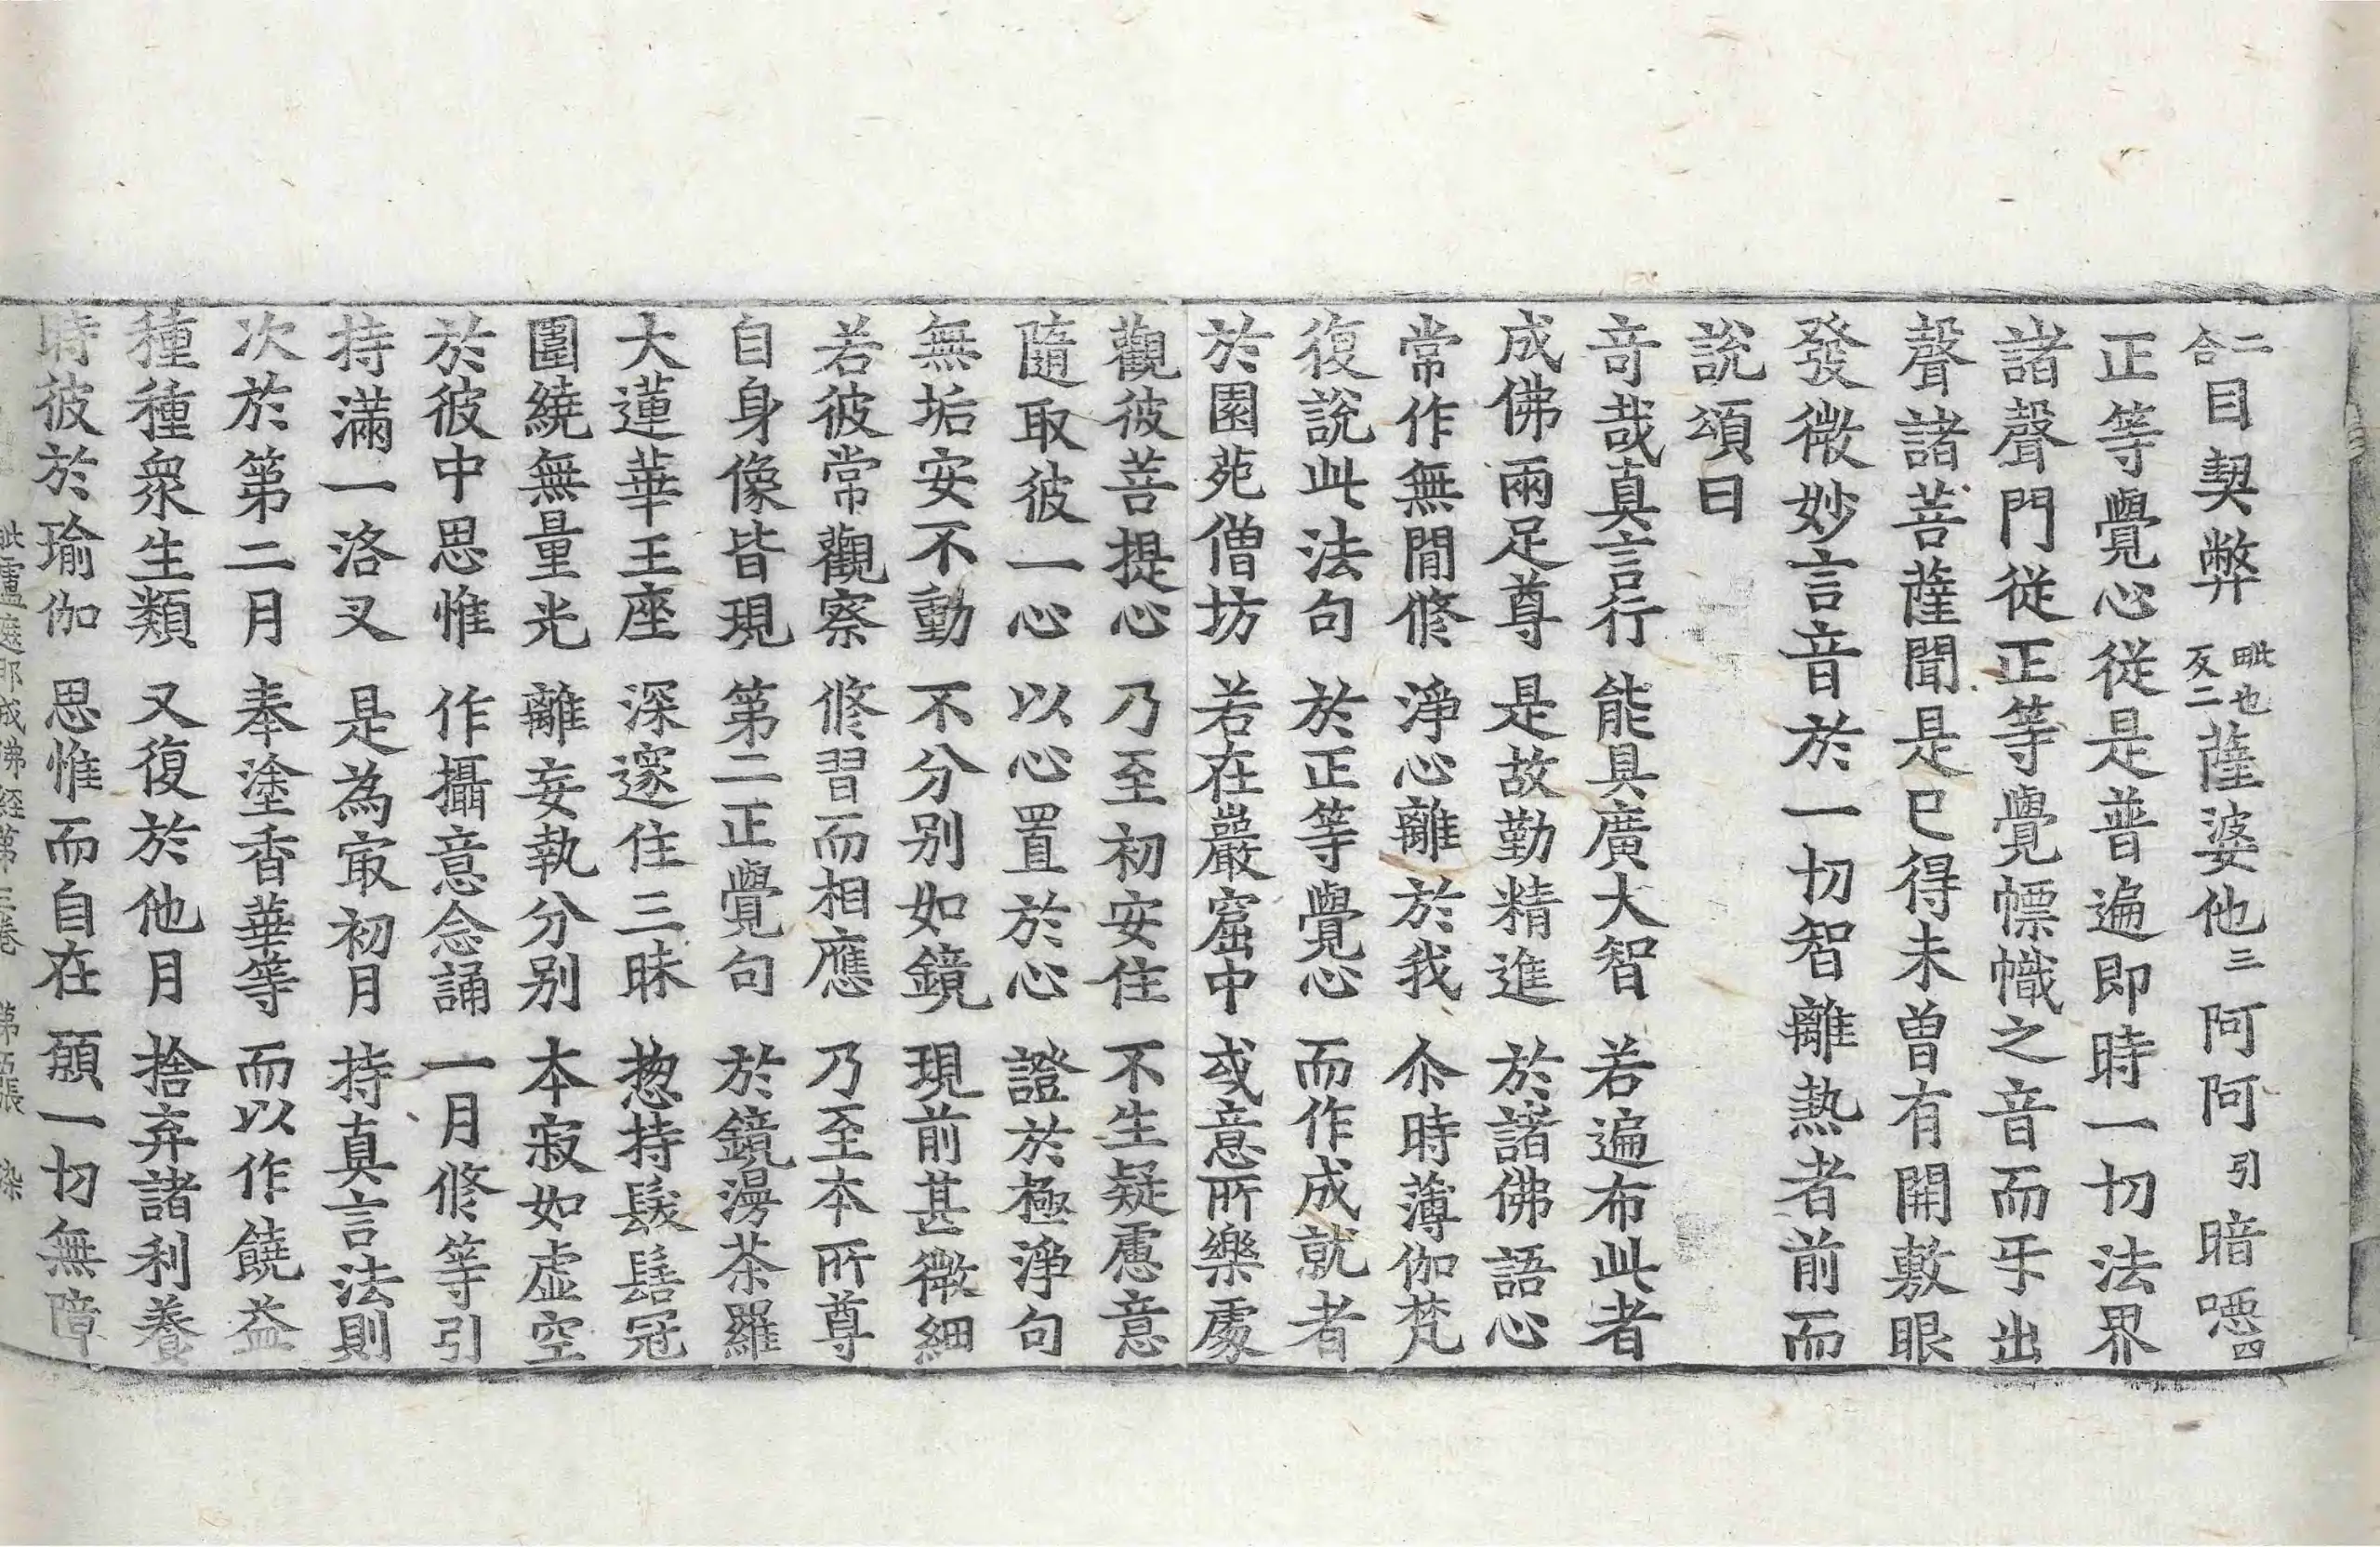 二合目契弊毗也反二薩婆他三阿阿引暗噁四
正等覺心從是普遍即時一切法界
諸聲門從正等覺幖幟之音而㸦出
聲諸菩薩聞是已得未曾有開敷眼
發微妙言音於一切智離熱者前而
說頌曰
奇哉真言行 能具廣大智 若遍布此者
成佛兩足尊 是故勤精進 於諸佛語心
常作無間修 淨心離於我 尒時薄伽梵
復說此法句 於正等覺心 而作成就者
於園苑僧坊 若在巖窟中 或意所樂處
觀彼菩提心 乃至初安住 不生疑慮意
隨取彼一心 以心置於心 證於極淨句
無垢安不動 不分別如鏡 現前甚微細
若彼常觀察 修習而相應 乃至本所尊
自身像皆現 第二正覺句 於鏡漫茶羅
大蓮華王座 深邃住三昧 惣持髮髻冠
圍繞無量光 離妄執分別 本寂如虛空
於彼中思惟 作攝意念誦 一月修等引
持滿一洛叉 是為㝡初月 持真言法則
次於第二月 奉塗香華等 而以作饒益
種種眾生類 又復於他月 捨弃諸利養
時彼於瑜伽 思惟而自在 願一切無障
毗盧遮那成佛經第三卷 第五張 染